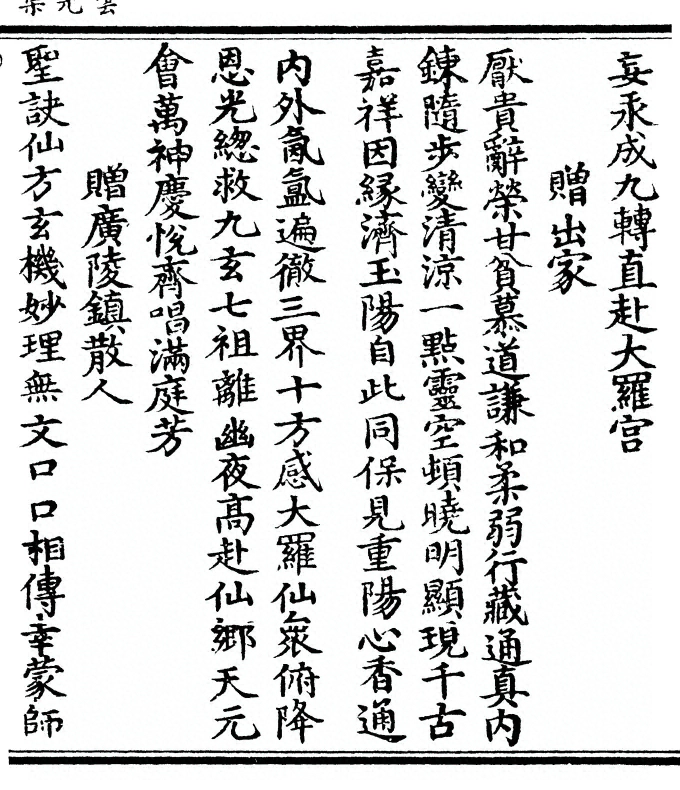 妄汞成九轉直赴大羅宫
贈出家
厭貴辭榮甘貧慕道謙和柔弱行藏通真内
鍊隨步變清涼一點靈空頓曉明顯現千古
嘉祥因緣濟玉陽自此同保見重陽心香通
内外氤氳遍徹三界十方感大羅仙衆俯降
恩光緫救九玄七祖離幽夜髙赴仙鄉天元
會萬神慶悅齊唱滿庭芳
贈廣陵鎮散人
聖訣仙方玄機妙理無文口口相傳幸蒙師